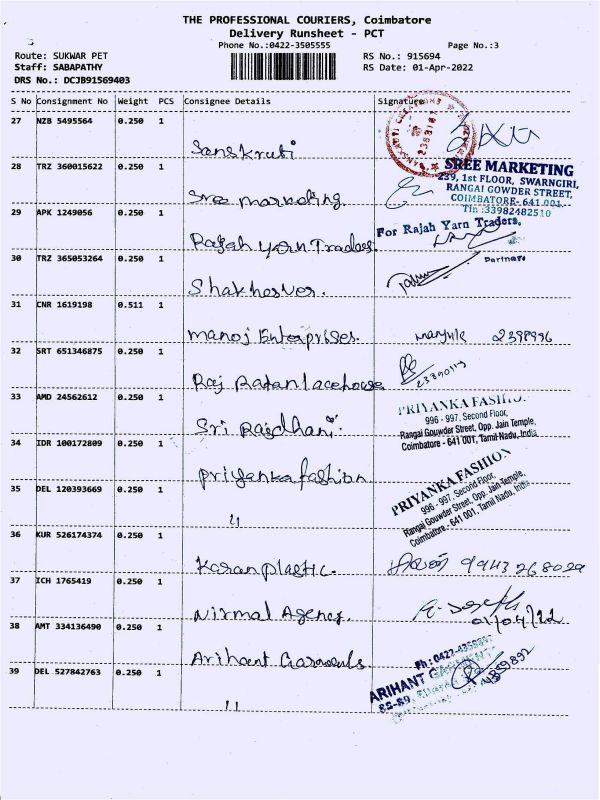 THE PROFESSIONAL COURIERS, Coimbatore
Delivery Runsheet - PCT
Phone No.:0422-3505555
Page No.:3
Route: SUKWAR PET
RS No.: 915694
Staff: SABAPATHY
RS Date: 01-Apr-2022
DRS No.: DCJB91569403
S No Consignment No Weight PCS Consignee Details Signature
27 NZB 5495564 0.250 1
Sanskruti
28 TRZ 360015622 0.250 1
Sree marketing.
SREE MARKETING
239, 1st FLOOR, SWARNGIRI,
RANGAI GOWDER STREET,
COIMBATORE- 641 001.
Tin :33982482510
29 APK 1249056 0.250 1
Rajah yarn Traders.
For Rajah Yarn Traders,
Partners
30 TRZ 365053264 0.250 1
31 CNR 1619198 0.511 1
manoj Enterprises.
2398996
32 SRT 651346875 0.250 1
Raj Ratan lacehouse
33 AMD 24562612 0.250 1
Sri Rajdhani.
PRIYANKA FASHI
996 - 997, Second Floor,
Rangai Gouwder Street, Opp. Jain Temple,
Coimbatore - 641 001, Tamil Nadu, India
34 IDR 100172809 0.250 1
Priyanka fashion
PRIYANKA FASHION
996 - 997, Second Floor,
Rangai Gouwder Street, Opp. Jain Temple,
Coimbatore - 641 001, Tamil Nadu, India
35 DEL 120393669 0.250 1
"
36 KUR 526174374 0.250 1
Karan plastic.
37 ICH 1765419 0.250 1
Nirmal Agency.
01/04/22
38 AMT 334136490 0.250 1
Arihant Garments
ARIHANT
39 DEL 527842763 0.250 1
"